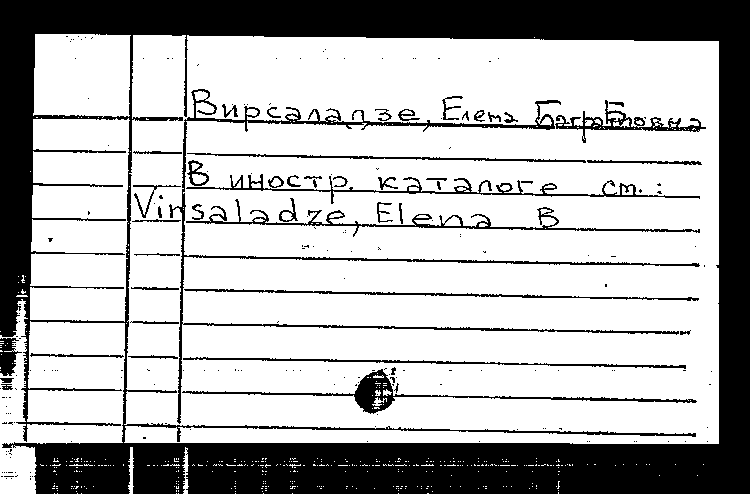 Вирсаладзе, Елена Багратовна
В иностр. каталоге см.:
Virsaladze, Elena B